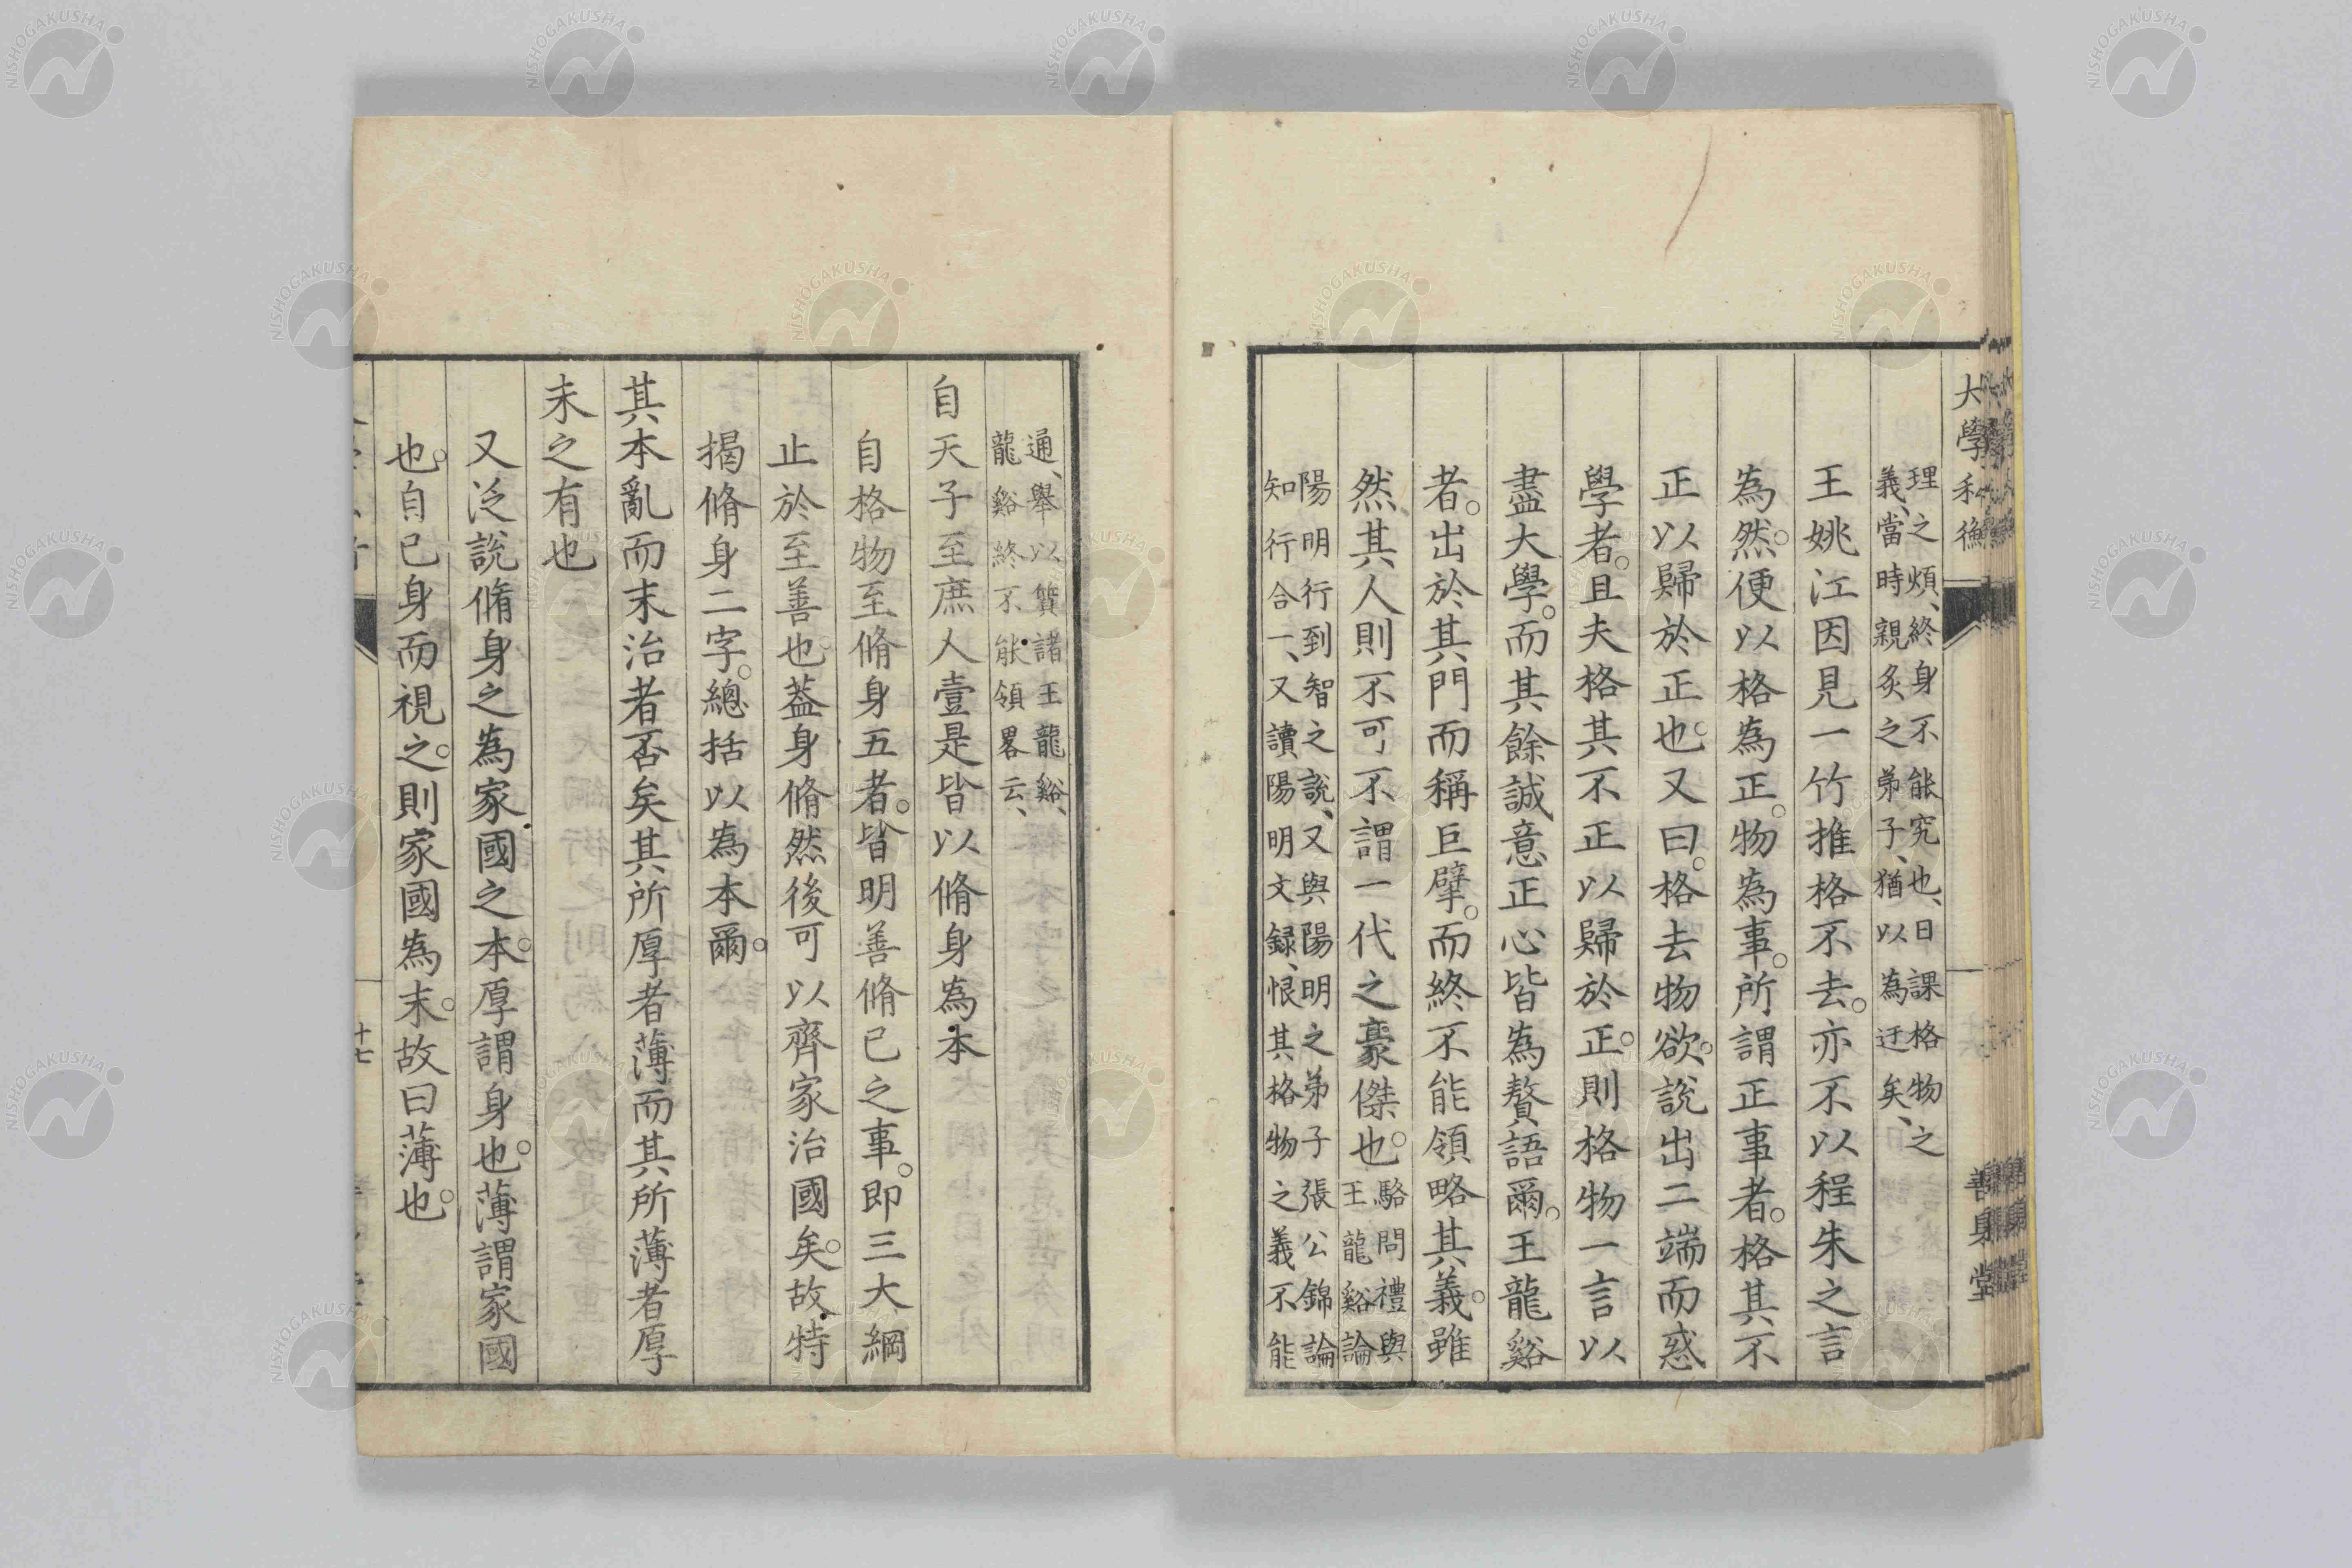 大學私衡
善身堂
理之煩、終身不能究也、日課格物之
義、當時親炙之弟子、猶以為迂矣、
王姚江因見一竹推格不去。亦不以程朱之言
為然。便以格為正。物為事。所謂正事者。格其不
正以歸於正也。又曰。格去物欲。說出二端而惑
學者。且夫格其不正以歸於正。則格物一言以
盡大學。而其餘誠意正心皆為贅語爾。王龍谿
者。出於其門而稱巨擘。而終不能領略其義。雖
然其人則不可不謂一代之豪傑也。駱問禮與王龍谿論
陽明行到智之說、又與陽明之弟子張公錦論
知行合一、又讀陽明文録、恨其格物之義不能
通、舉以質諸王龍谿、
龍谿終不能領畧云、
自天子至庶人壹是皆以脩身為本
自格物至脩身五者。皆明善脩己之事。即三大綱
止於至善也。葢身脩然後可以齊家治國矣。故特
揭脩身二字。總括以為本爾。
其本亂而末治者否矣其所厚者薄而其所薄者厚
未之有也
又泛說脩身之為家國之本。厚謂身也。薄謂家國
也。自己身而視之。則家國為末。故曰薄也。
十七
NISHOGAKUSHA